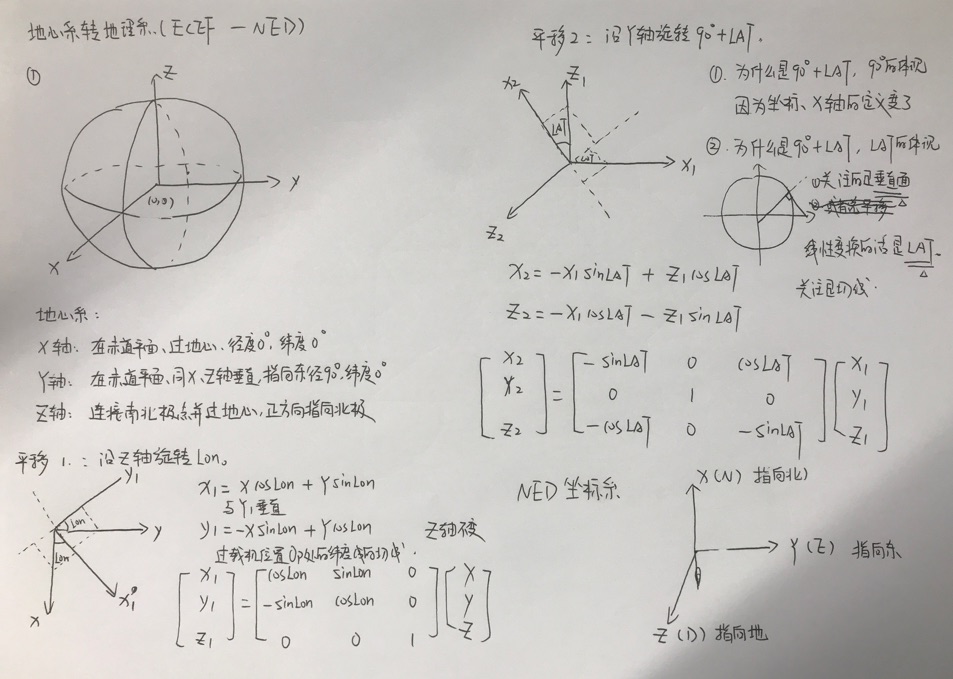 地心系转地理系.(ECEF — NED)
①
Z
Y
X
(0,0)
地心系:
X轴: 在赤道平面、过地心、径度0°,纬度0°
Y轴: 在赤道平面、同X、Z轴垂直,指向东径90°,纬度0°
Z轴: 连接南北极点并过地心,正方向指向北极
平移1.: 沿Z轴旋转Lon。
Y1
Lon
Y
Lon
X
X1
X1 = X cosLon + Y sinLon
与Y1垂直
Y1 = -X sinLon + Y cosLon
Z轴不变
过载机位置 的纬度 的切线.
[X1] = [cosLon sinLon 0] [X]
[Y1] [-sinLon cosLon 0] [Y]
[Z1] [0 0 1] [Z]
平移2: 沿Y轴旋转90°+LAT.
X2
Z1
LAT
LAT
X1
Z2
①. 为什么是90°+LAT, 90°的体现
因为坐标、X轴的定义变了
②. 为什么是90°+LAT, LAT的体现
①关注的是垂直面
线性变换的话是LAT.
关注是切线.
X2 = -X1 sinLAT + Z1 cosLAT
Z2 = -X1 cosLAT - Z1 sinLAT
[X2] = [-sinLAT 0 cosLAT] [X1]
[Y2] [0 1 0] [Y1]
[Z2] [-cosLAT 0 -sinLAT] [Z1]
NED 坐标系
X(N) 指向北
Y(E) 指向东
Z(D) 指向地